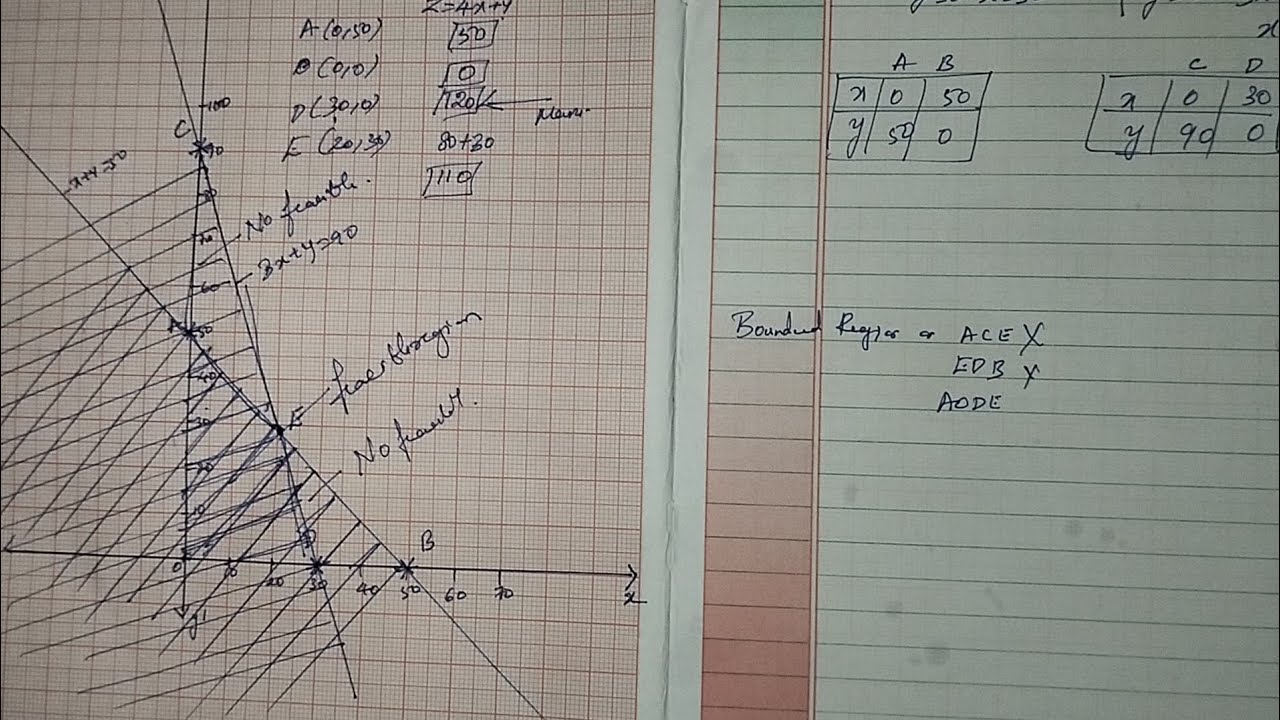 Z=4x+y
A (0,50) 50
O (0,0) 0
D (30,0) 120
E (20,30) 80+30
110
100
C
90
x+y=50
80
No feasible.
70
3x+y=90
60
A 50
40
30
E
feasible region
20
No feasible.
10
D
B
0 10 20 30 40 50 60 70
x
y'
x
A B
x 0 50
y 50 0
C D
x 0 30
y 90 0
Bounded Region
ACE X
EDB X
AODE